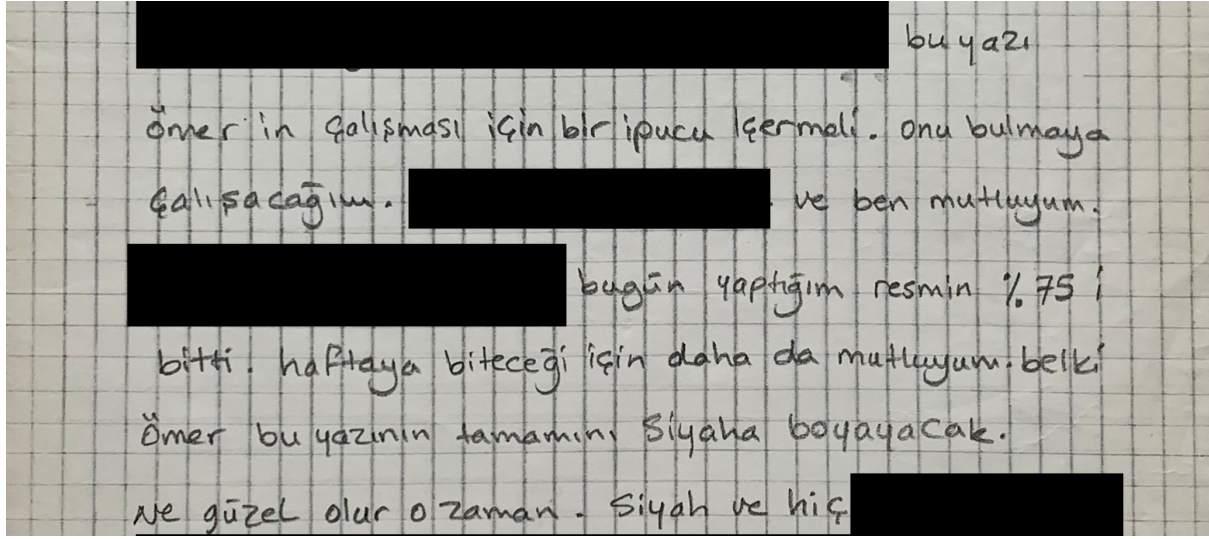 bu yazı
Ömer'in çalışması için bir ipucu içermeli. onu bulmaya
çalışacağım. ve ben mutluyum.
bugün yaptığım resmin %75 i
bitti. haftaya biteceği için daha da mutluyum. belki
Ömer bu yazının tamamını siyaha boyayacak.
Ne güzel olur o zaman. Siyah ve hiç